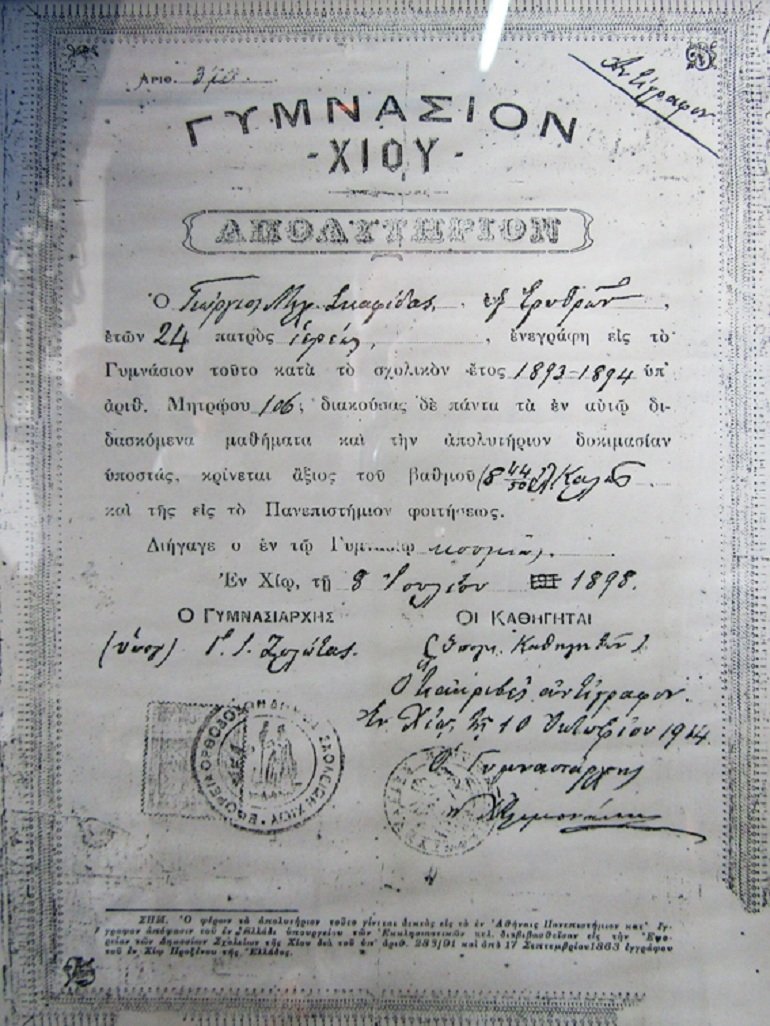 Αριθ. 370
Αντίγραφον
ΓΥΜΝΑΣΙΟΝ
-ΧΙΟΥ-
ΑΠΟΛΥΤΗΡΙΟΝ
Ὁ Γεώργιος Μιχ. Σκαφίδας, ἐξ Ἐρυθρῶν,
ἐτῶν 24 πατρὸς ἱερέως, ἐνεγράφη εἰς τὸ
Γυμνάσιον τοῦτο κατὰ τὸ σχολικὸν ἔτος 1893-1894 ὑπ'
ἀριθ. Μητρῴου 106; διακούσας δὲ πάντα τὰ ἐν αὐτῷ δι-
δασκόμενα μαθήματα καὶ τὴν ἀπολυτήριον δοκιμασίαν
ὑποστάς, κρίνεται ἄξιος τοῦ βαθμοῦ (8 44/50) Καλῶς
καὶ τῆς εἰς τὸ Πανεπιστήμιον φοιτήσεως.
Διήγαγε ο ἐν τῷ Γυμνασίῳ κοσμίως.
Ἐν Χίῳ, τῇ 8 Ἰουλίου 1898.
Ο ΓΥΜΝΑΣΙΑΡΧΗΣ ΟΙ ΚΑΘΗΓΗΤΑΙ
(ὑπογ) Γ. Ι. Ζολώτας. (Ὑπογρ. Καθηγητῶν)
Ὅτι ἀκριβὲς ἀντίγραφον.
Ἐν Χίῳ, τῇ 10 Ὀκτωβρίου 1914
Ὁ Γυμνασιάρχης
ΕΦΟΡΕΙΑ ΟΡΘΟΔΟΞΩΝ ΔΗΜΟΣ. ΣΧΟΛΕΙΩΝ ΧΙΟΥ
ΣΗΜ. Ὁ φέρων τὸ ἀπολυτήριον τοῦτο γίνεται δεκτὸς εἰς τὸ ἐν Ἀθήναις Πανεπιστήμιον κατ' ἔγ-
γραφον ἀπόφασιν τοῦ ἐν Ἑλλάδι ὑπουργείου τῶν Ἐκκλησιαστικῶν κτλ. διαβιβασθεῖσαν εἰς τὴν Ἐφο-
ρείαν τῶν Δημοσίων Σχολείων τῆς Χίου διὰ τοῦ ὑπ' ἀριθ. 283/91 καὶ ἀπὸ 17 Σεπτεμβρίου 1863 ἐγγράφου
τοῦ ἐν Χίῳ Προξένου τῆς Ἑλλάδος.